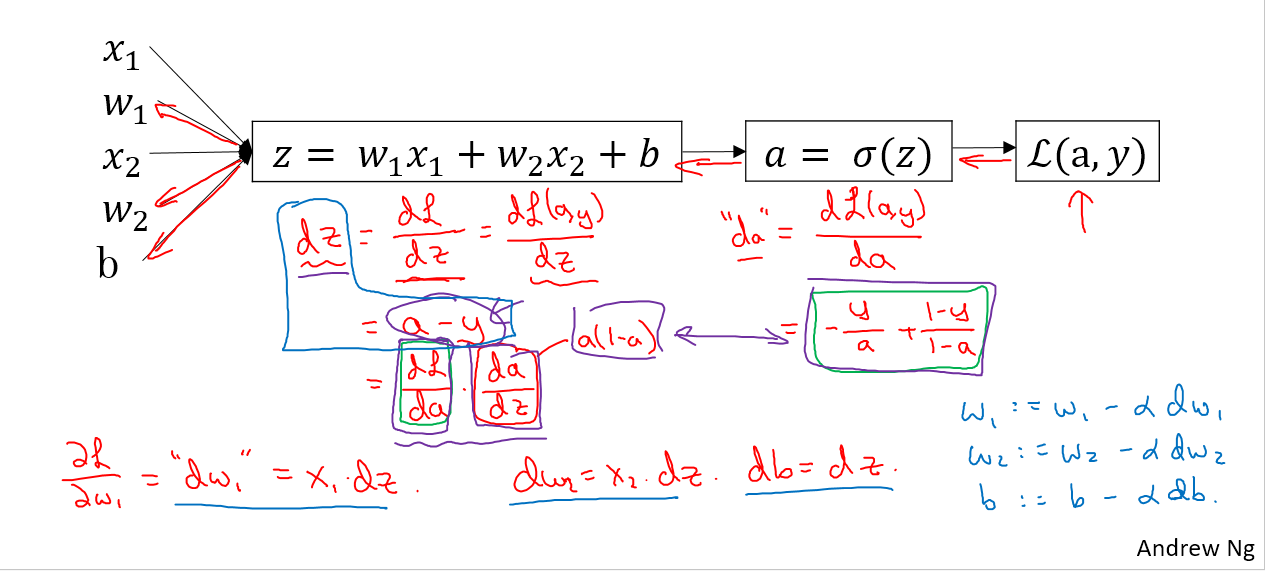 x₁
w₁
x₂
w₂
b
z = w₁x₁ + w₂x₂ + b
a = σ(z)
ℒ(a, y)
dz = dℒ/dz = dℒ(a,y)/dz
= a - y
= dℒ/da · da/dz
a(1-a)
"da" = dℒ(a,y)/da
= -y/a + (1-y)/(1-a)
∂ℒ/∂w₁ = "dw₁" = x₁·dz.
dw₂ = x₂·dz.
db = dz.
w₁ := w₁ - α dw₁
w₂ := w₂ - α dw₂
b := b - α db.
Andrew Ng